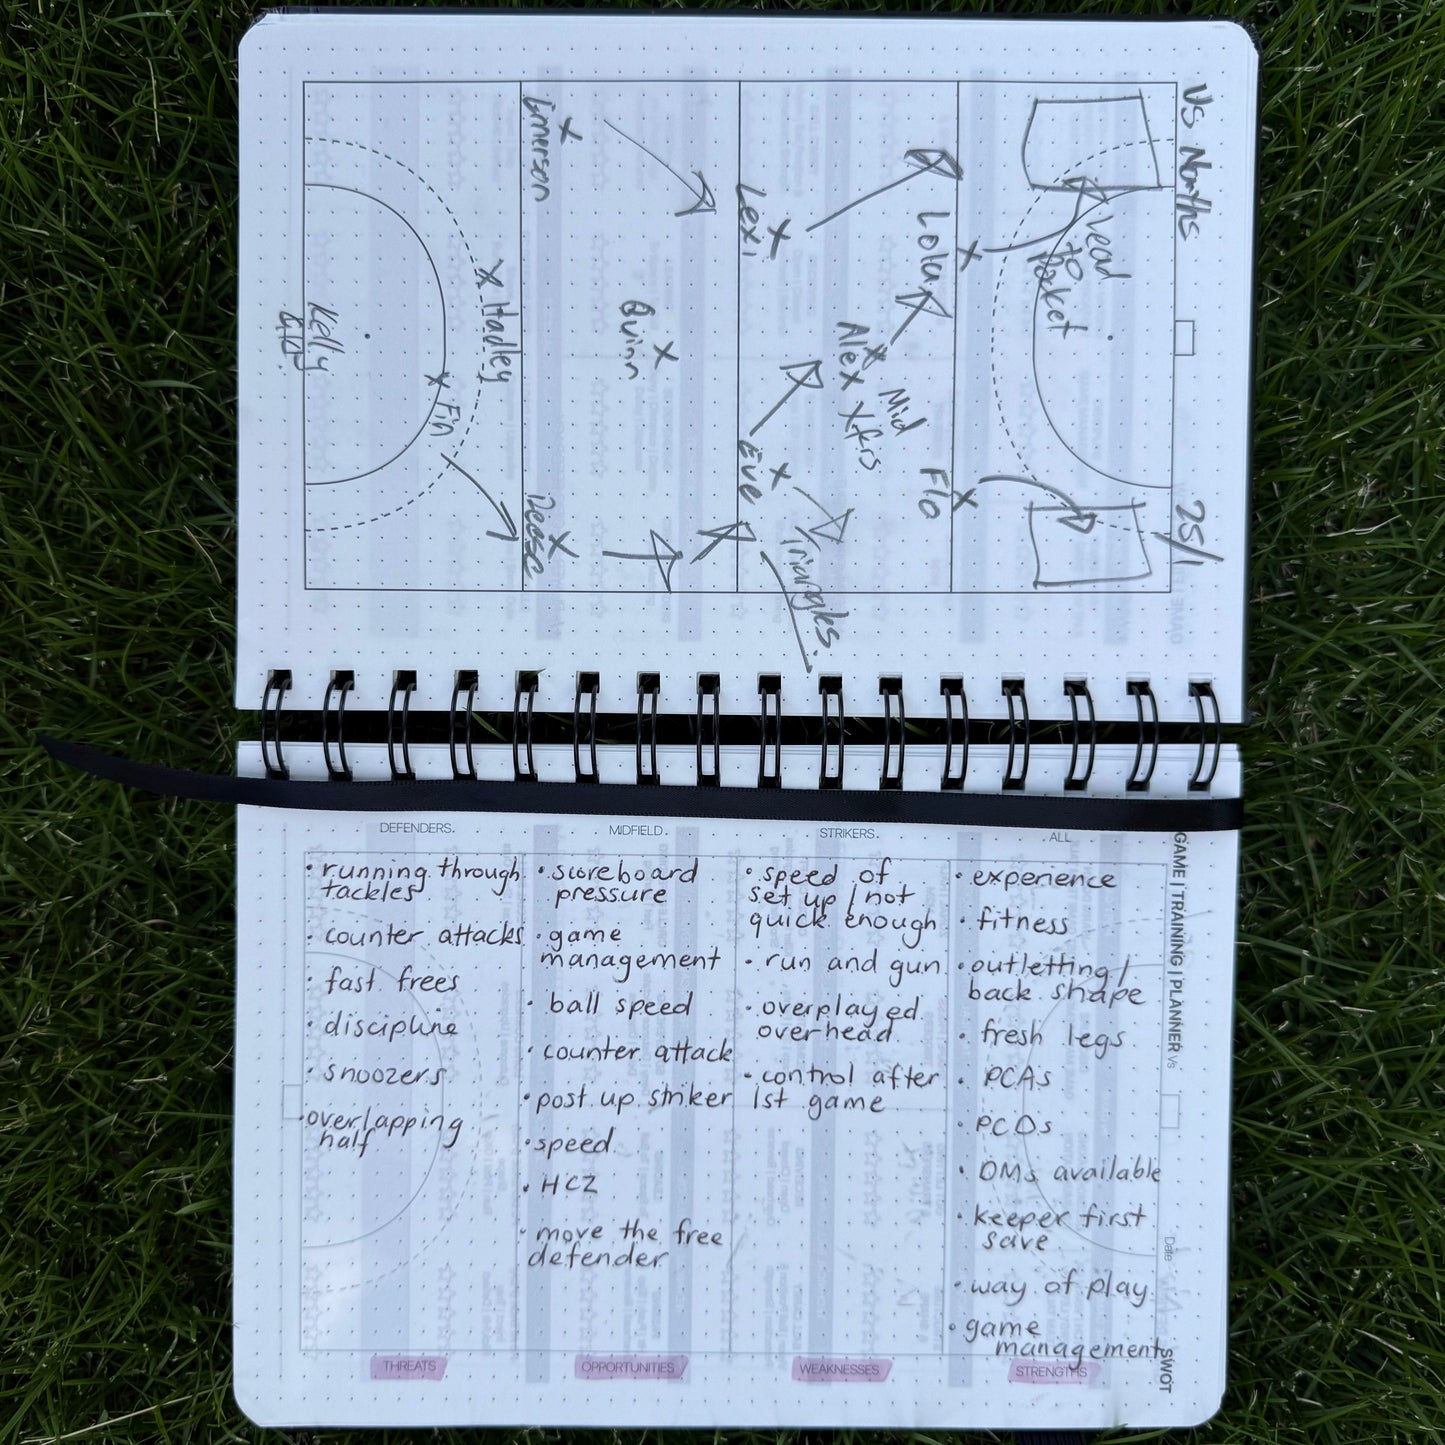 VS Norths
25/1
Lead
to
Pocket
Lola
Flo
Mid
Xfrs
Alex
Lexi
Eve
Triangles.
Quinn
Emerson
Reese
Hadley
Fin
Kelly
DEFENDERS.
MIDFIELD.
STRIKERS.
ALL
GAME | TRAINING | PLANNER vs
Date
SWOT
• running through
tackles
• counter attacks
• fast frees
• discipline
• snoozers
• overlapping
half
THREATS
• scoreboard
pressure
• game
management
• ball speed
• counter attack
• post up striker
• speed
• HCZ
• move the free
defender
OPPORTUNITIES
• speed of
set up / not
quick enough
• run and gun
• overplayed
overhead
• control after
1st game
WEAKNESSES
• experience
• fitness
• outletting /
back shape
• fresh legs
• PCAs
• PCDs
• DMs available
• keeper first
save
• way of play
• game
management
STRENGTHS